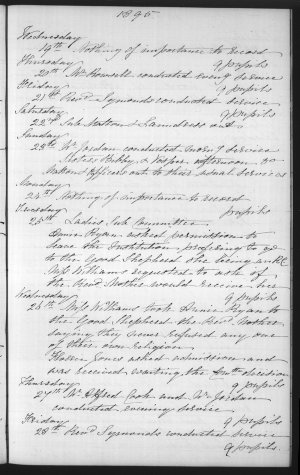 1895
Wednesday
19th Nothing of importance to record
9 pupils
Thursday
20th Mr Howell conducted eveng service
9 pupils
Friday
21st Revd Symonds conducted service
9 pupils
Saturday
22nd Sub Matron & Laundress out
Sunday
23rd Mr Jordan conducted morng service
afternoon so
Matron & Officers out to their usual services
Monday
24th Nothing of importance to record
pupils
Tuesday
25th Ladies Sub Committee
Annie Ryan asked permission to
leave the Institution preferring to go
to the Good Shepherd she being a R.C
Miss Williams requested to ask if
the Revd Mother would receive her
9 pupils
Wednesday
26th Miss Williams took Annie Ryan to
the Good Shepherd the Revd Mother
saying they never refused any one
of their own religion
Jones asked admission and
was received waiting the Comttee decision
9 pupils
Thursday
27th Mr Alfred Cook and Mr Jordan
conducted evening service
9 pupils
Friday
28th Revd Symonds conducted service
9 pupils